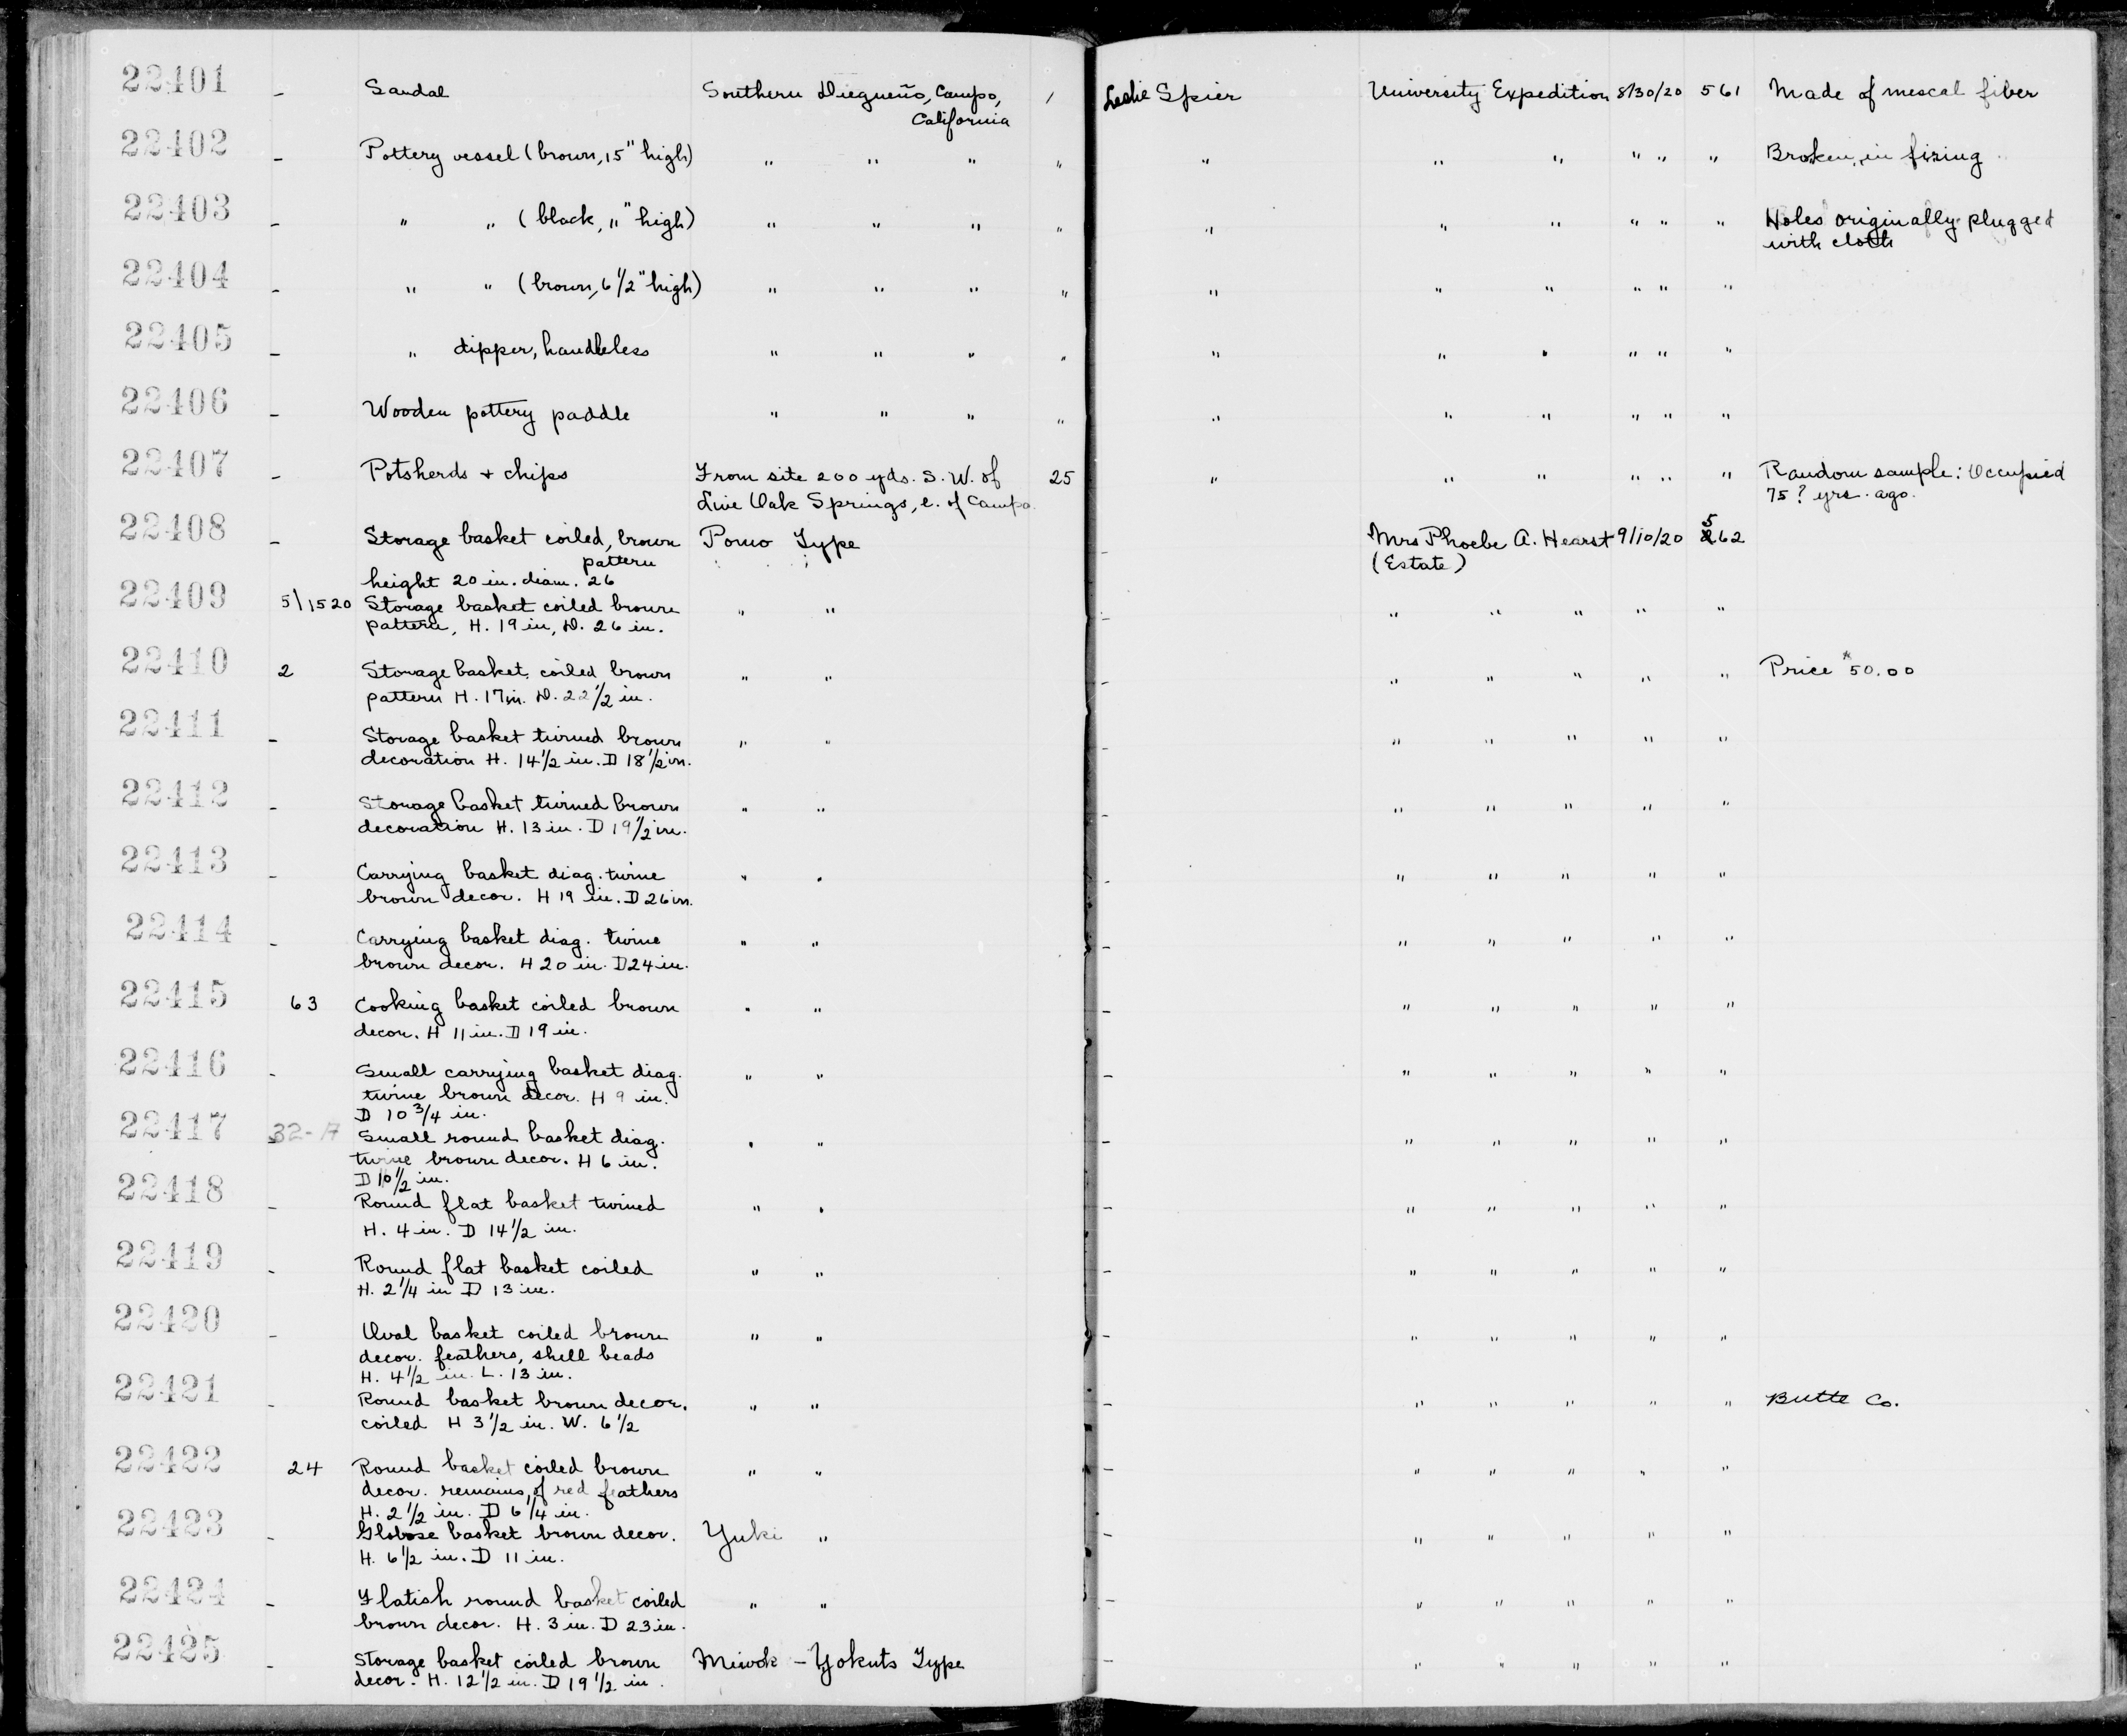 22401 - Sandal Southern Diegueño, Campo, 1 Leslie Spier University Expedition 8/30/20 561 Made of mescal fiber
California
22402 - Pottery vessel (brown, 15" high) " " " " " " " " " " Broken in firing
22403 - " " (black, 11" high) " " " " " " " " " " Holes originally plugged
with cloth
22404 - " " (brown, 6 1/2" high) " " " " " " " " " "
22405 - " dipper, handleless " " " " " " " " " "
22406 - Wooden pottery paddle " " " " " " " " " "
22407 - Potsherds + chips From site 200 yds. S. W. of 25 " " " " " " Random sample: Occupied
Live Oak Springs, e. of Campo 75? yrs. ago.
22408 - Storage basket coiled, brown Pomo Type - Mrs Phoebe A. Hearst 9/10/20 562
pattern (Estate)
height 20 in. diam. 26
22409 5/1520 Storage basket coiled brown " " - " " " " "
pattern, H. 19 in, D. 26 in.
22410 2 Storage basket, coiled brown " " - " " " " " Price $50.00
pattern H. 17 in. D. 22 1/2 in.
22411 - Storage basket twined brown " " - " " " " "
decoration H. 14 1/2 in. D 18 1/2 in.
22412 - Storage basket twined brown " " - " " " " "
decoration H. 13 in. D 19 1/2 in.
22413 - Carrying basket diag. twine " " - " " " " "
brown decor. H 19 in. D 26 in.
22414 - Carrying basket diag. twine " " - " " " " "
brown decor. H 20 in. D 24 in.
22415 63 Cooking basket coiled brown " " - " " " " "
decor. H 11 in. D 19 in.
22416 - Small carrying basket diag. " " - " " " " "
twine brown decor. H 9 in.
D 10 3/4 in.
22417 32-A Small round basket diag. " " - " " " " "
twine brown decor. H 6 in.
D 10 1/2 in.
22418 - Round flat basket twined " " - " " " " "
H. 4 in. D 14 1/2 in.
22419 - Round flat basket coiled " " - " " " " "
H. 2 1/4 in D 13 in.
22420 - Oval basket coiled brown " " - " " " " "
decor. feathers, shell beads
H. 4 1/2 in. L. 13 in.
22421 - Round basket brown decor. " " - " " " " " Butte Co.
coiled H 3 1/2 in. W. 6 1/2
22422 24 Round basket coiled brown " " - " " " " "
decor. remains of red feathers
H. 2 1/2 in. D 6 1/4 in.
22423 - Globose basket brown decor. Yuki " - " " " " "
H. 6 1/2 in. D 11 in.
22424 - Flatish round basket coiled " " - " " " " "
brown decor. H. 3 in. D 23 in.
22425 - Storage basket coiled brown Miwok - Yokuts Type - " " " " "
decor. H. 12 1/2 in. D 19 1/2 in.